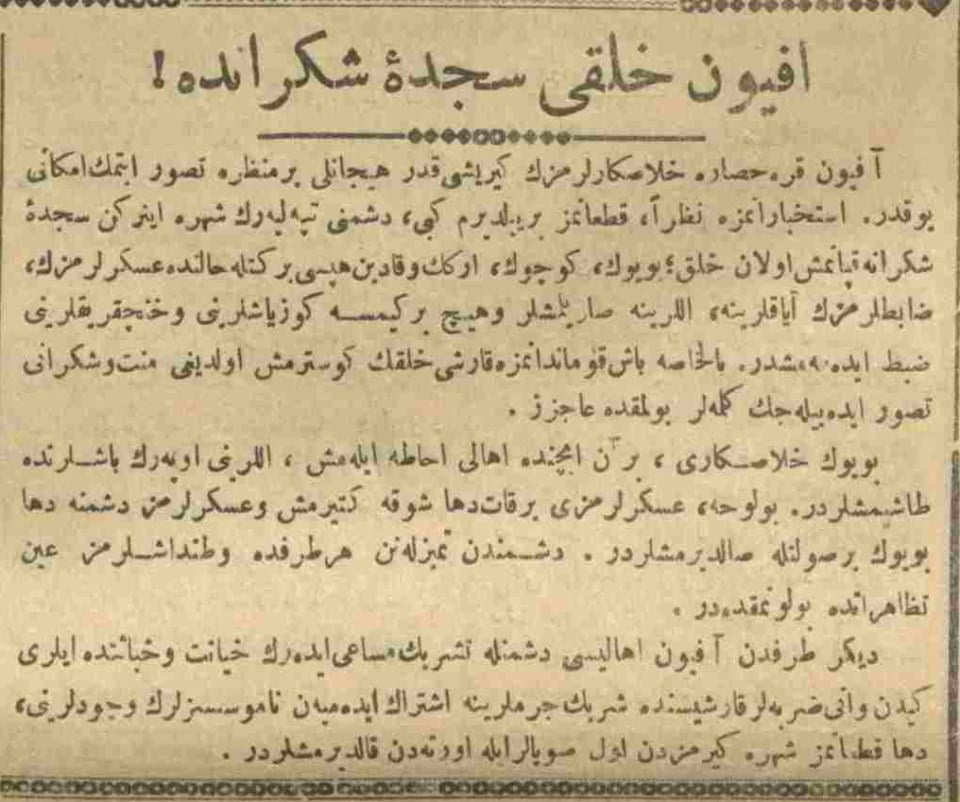 افیون خلقی سجدهٔ شکرانده!
آفیون قره‌حصاره خلاصکارلرمزك کیریشی قدر هیجانلی برمنظره تصور ایتمك امکانی
یوقدر. استخباراتمزه نظراً، قطعاتمز بریبلدیرم کبی، دشمنی تپه‌لیه‌رك شهره اینرکن سجدهٔ
شکرانه قپانمش اولان خلق؛ بویوك، کوچوك، ارکك وقادین هپسی برکتله حالنده عسکرلرمزك،
ضابطلرمزك آیاقلرینه، اللرینه صاریلمشلر وهیچ برکیمسه کوزیاشلرینی وخنچقریقلرینی
ضبط ایده‌مه‌مشدر. بالخاصه باش قوماندانمزه قارشی خلقك کوسترمش اولدیغی منت وشکرانی
تصور ایده‌بیله‌جك کله‌لر بولمقده عاجزز .
بویوك خلاصکاری ، بر آن ایچنده اهالی احاطه ایله‌مش ، اللرینی اوپه‌رك باشلرنده
طاشیمشلردر. بولوحه، عسکرلرمزی برقات دها شوقه کتیرمش وعسکرلرمز دشمنه دها
بویوك برصولتله صالدیرمشلردر . دشمندن تمیزله‌نن هرطرفده وطنداشلرمز عین
تظاهراتده بولونمقده‌در .
دیکر طرفدن آفیون اهالیسی دشمنله تشریك مساعی ایده‌رك خیانت وخباثتده ایلری
کیدن وآنی ضربه‌لر قارشیسنده شریك جرملرینه اشتراك ایده‌میه‌ن ناموسسزلرك وجودلرینی،
دها قطعاتمز شهره کیرمزدن اول صوپالرایله اورته‌دن قالدیرمشلردر .